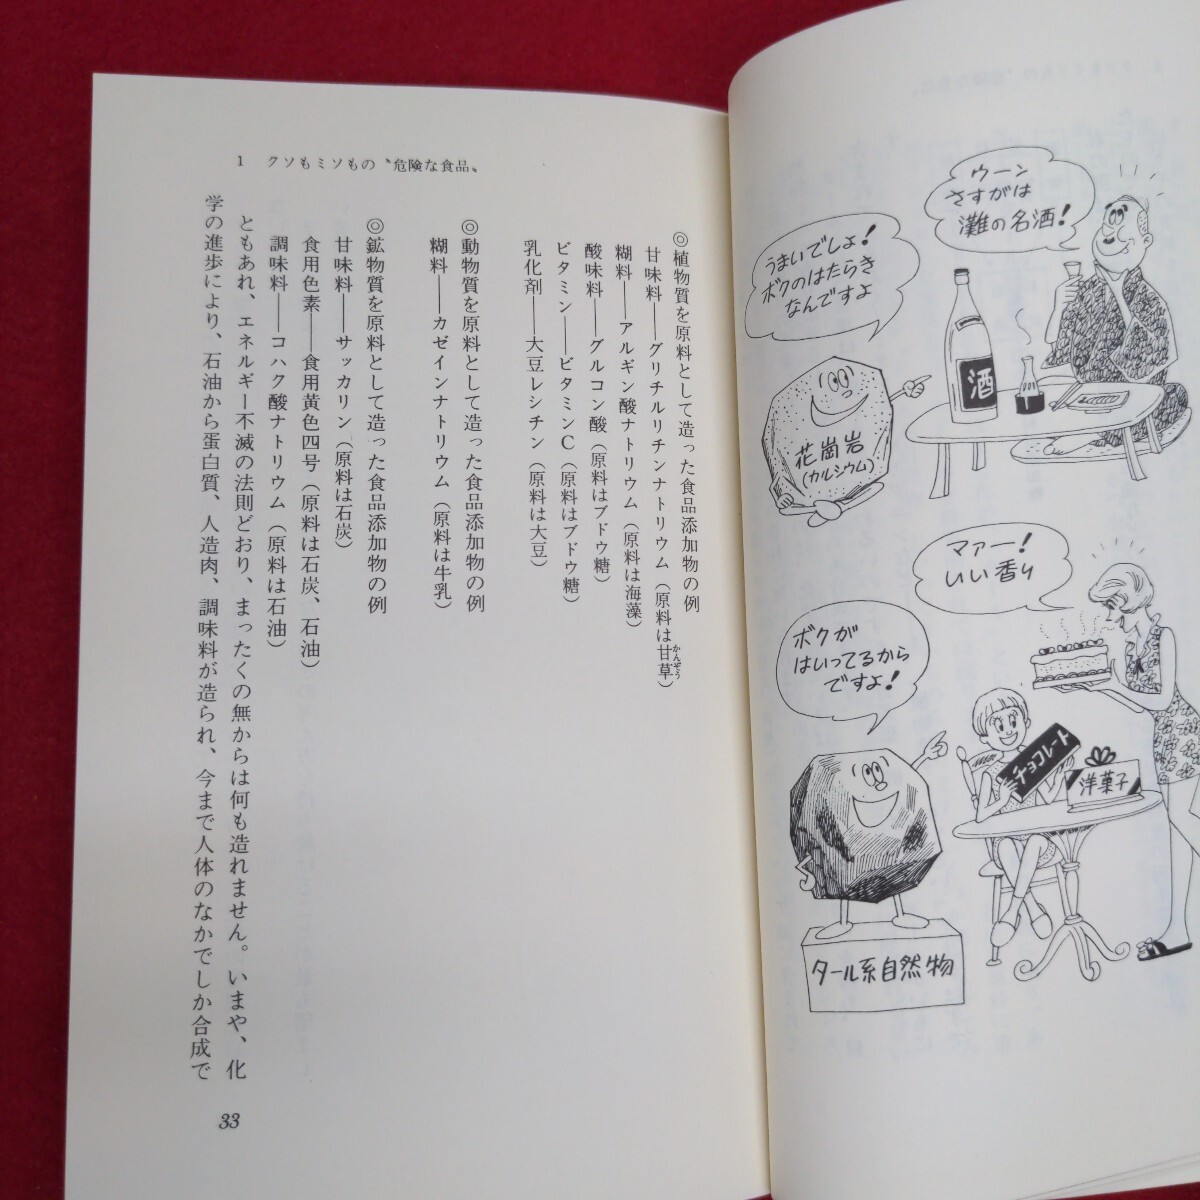 ウーン
さすがは
灘の名酒！
うまいでしょ！
ボクのはたらき
なんですよ
酒
花崗岩
(カルシウム)
マァー！
いい香り
ボクが
はいってるから
ですよ！
チョコレート
洋菓子
タール系自然物
1 クソもミソもの〝危険な食品〟
◎植物質を原料として造った食品添加物の例
甘味料――グリチルリチンナトリウム（原料は甘草）
かんぞう
糊料――アルギン酸ナトリウム（原料は海藻）
酸味料――グルコン酸（原料はブドウ糖）
ビタミン――ビタミンC（原料はブドウ糖）
乳化剤――大豆レシチン（原料は大豆）
◎動物質を原料として造った食品添加物の例
糊料――カゼインナトリウム（原料は牛乳）
◎鉱物質を原料として造った食品添加物の例
甘味料――サッカリン（原料は石炭）
食用色素――食用黄色四号（原料は石炭、石油）
調味料――コハク酸ナトリウム（原料は石油）
ともあれ、エネルギー不滅の法則どおり、まったくの無からは何も造れません。いまや、化
学の進歩により、石油から蛋白質、人造肉、調味料が造られ、今まで人体のなかでしか合成で
33